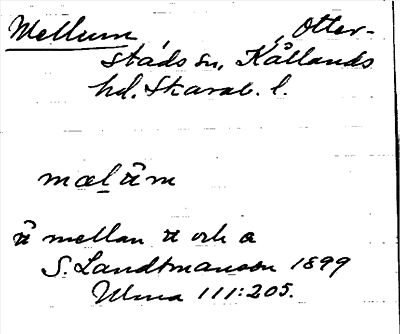 Mellum, Otter-
stads sn, Kållands
hd. Skarab. l.
mæl
mellan och a
S. Landtmanson 1899
Ulma 111:205.